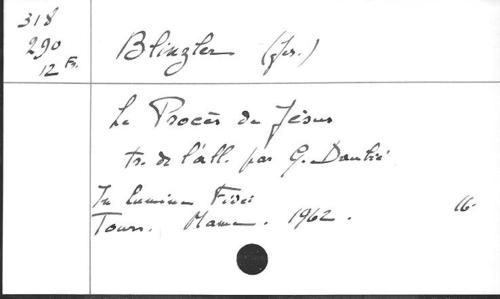 318
290
12 Fr.
Blinzler (Jos.)
Le Procès de Jésus
tr. de l'all. par G. Daubié
In lumine Fidei
Tours. Mame. 1962.
16-